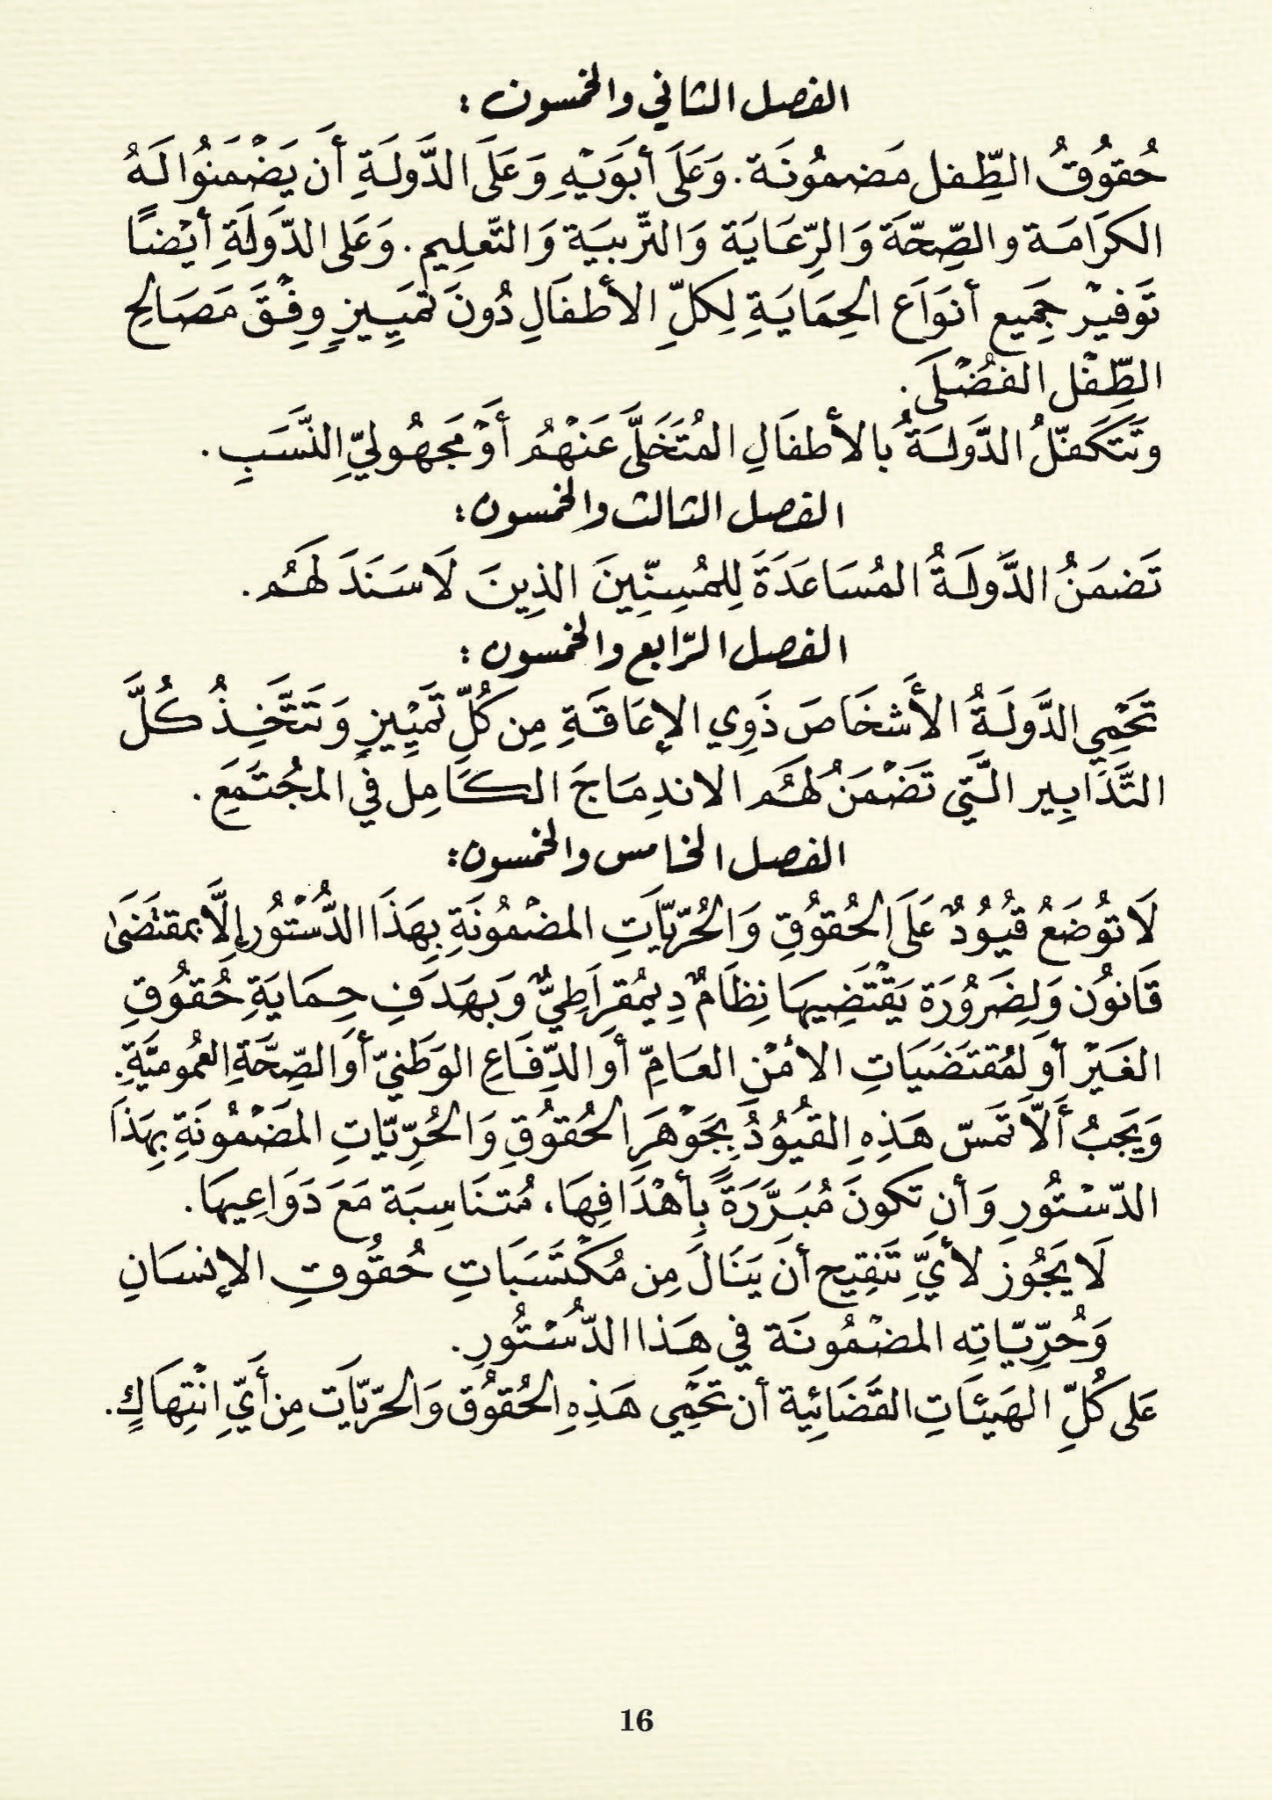 الفصل الثاني والخمسون :
حُقوُقُ الطِّفل مَضمُونَة. وَعَلَى أبَوَيْهِ وَعَلَى الدَّولَةِ أَن يَضْمَنُوا لَهُ
الكَرَامَة والصِّحَّةَ وَالرِّعَايَة وَالتَّربيَة وَالتَّعلِيم. وَعَلى الدَّولَةِ أيْضًا
تَوَفيْر جَمِيع أنوَاَع الحِمَايَةِ لِكلِّ الأطفَالِ دُونَ تمَيِيزٍ وِفْقَ مَصَالِح
الطِّفْل الفضْلَى.
وتَتَكَفلُ الدَّولَةُ بالأطفَالِ المُتَخَلَّى عَنْهُم أَوْ مَجهُوليِّ النَّسَبِ .
الفصل الثالث والخمسون:
تَضمَنُ الدَّولَةُ المُسَاعَدَةَ لِلمُسِنِّينَ الذِينَ لَا سَنَدَ لَهَم.
الفصل الرّابع والخمسون :
تَحْمِي الدَّولَةُ الأَشخَاصَ ذَوِي الإعَاقَةِ مِن كُلِّ تَميِيزٍ وَتَتَّخِذُ كُلَّ
التَّدَابِير الَّتِي تَضْمَنُ لهَم الاندِمَاجَ الكَامِل في المجُتَمَعِ .
الفصل الخامس والخمسون:
لَا توُضَعُ قيُودٌ عَلَى الحُقوُقِ وَالحُرّيَّاتِ المضمُونَةِ بِهَذَا الدُّسْتُور إلَّا بمقتَضَى
قَانوُن وَلِضَرُورَة يَقْتَضِيهَا نِظَامٌ دِيمُقرَاطِيٌّ وَبهَدَفِ حِمَايَةِ حُقوُقِ
الغَيْر أوَ لمُقتَضَيَاتِ الأمْنِ العَامِّ أو الدِّفَاعِ الوَطَنيّ أوَ الصِّحَّةِ العُموميَّةِ.
وَيَجبُ أَلاَّ تَمَسّ هَذِهِ القيُوُدُ بِجَوْهَرِ الحُقوُقِ وَالحُرِّيّاتِ المَضْمُونَةِ بِهَذَا
الدّسْتُورِ وَأن تَكونَ مُبَرَّرَةً بِأهْدَافِهَا، مُتنَاسِبَة مَعَ دَوَاعِيهَا.
لَا يَجُوزَ لأيِّ تَنقِيح أنَ يَنَالَ مِن مُكْتَسَبَاتِ حُقُوقِ الإنسَانِ
وَحُرِّيّاتِه المضمُونَة في هَذا الدُّسْتُورِ.
عَلى كُلِّ الهَيئَاتِ القَضَائِية أن تَحْمِي هَذِهِ الحُقوُق وَالحرّيَّات مِن أَيِّ انْتِهَاكٍ.
16